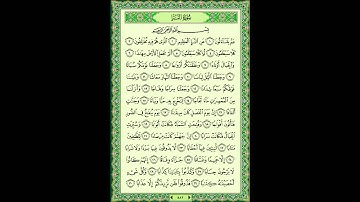 سُورَةُ النَّبَإِ
بِسْمِ اللَّهِ الرَّحْمَٰنِ الرَّحِيمِ
عَمَّ يَتَسَاءَلُونَ ١ عَنِ النَّبَإِ الْعَظِيمِ ٢ الَّذِي هُمْ فِيهِ مُخْتَلِفُونَ ٣
كَلَّا سَيَعْلَمُونَ ٤ ثُمَّ كَلَّا سَيَعْلَمُونَ ٥ أَلَمْ نَجْعَلِ الْأَرْضَ مِهَادًا ٦
وَالْجِبَالَ أَوْتَادًا ٧ وَخَلَقْنَاكُمْ أَزْوَاجًا ٨ وَجَعَلْنَا نَوْمَكُمْ سُبَاتًا
٩ وَجَعَلْنَا اللَّيْلَ لِبَاسًا ١٠ وَجَعَلْنَا النَّهَارَ مَعَاشًا ١١ وَبَنَيْنَا
فَوْقَكُمْ سَبْعًا شِدَادًا ١٢ وَجَعَلْنَا سِرَاجًا وَهَّاجًا ١٣ وَأَنزَلْنَا
مِنَ الْمُعْصِرَاتِ مَاءً ثَجَّاجًا ١٤ لِّنُخْرِجَ بِهِ حَبًّا وَنَبَاتًا ١٥ وَجَنَّاتٍ
أَلْفَافًا ١٦ إِنَّ يَوْمَ الْفَصْلِ كَانَ مِيقَاتًا ١٧ يَوْمَ يُنفَخُ فِي الصُّورِ
فَتَأْتُونَ أَفْوَاجًا ١٨ وَفُتِحَتِ السَّمَاءُ فَكَانَتْ أَبْوَابًا ١٩ وَسُيِّرَتِ
الْجِبَالُ فَكَانَتْ سَرَابًا ٢٠ إِنَّ جَهَنَّمَ كَانَتْ مِرْصَادًا ٢١ لِّلطَّاغِينَ
مَآبًا ٢٢ لَّابِثِينَ فِيهَا أَحْقَابًا ٢٣ لَّا يَذُوقُونَ فِيهَا بَرْدًا وَلَا شَرَابًا
٢٤ إِلَّا حَمِيمًا وَغَسَّاقًا ٢٥ جَزَاءً وِفَاقًا ٢٦ إِنَّهُمْ كَانُوا
لَا يَرْجُونَ حِسَابًا ٢٧ وَكَذَّبُوا بِآيَاتِنَا كِذَّابًا ٢٨ وَكُلَّ شَيْءٍ
أَحْصَيْنَاهُ كِتَابًا ٢٩ فَذُوقُوا فَلَن نَّزِيدَكُمْ إِلَّا عَذَابًا ٣٠
٥٨٢